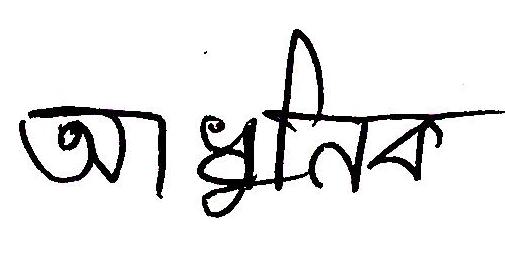 আধুনিক